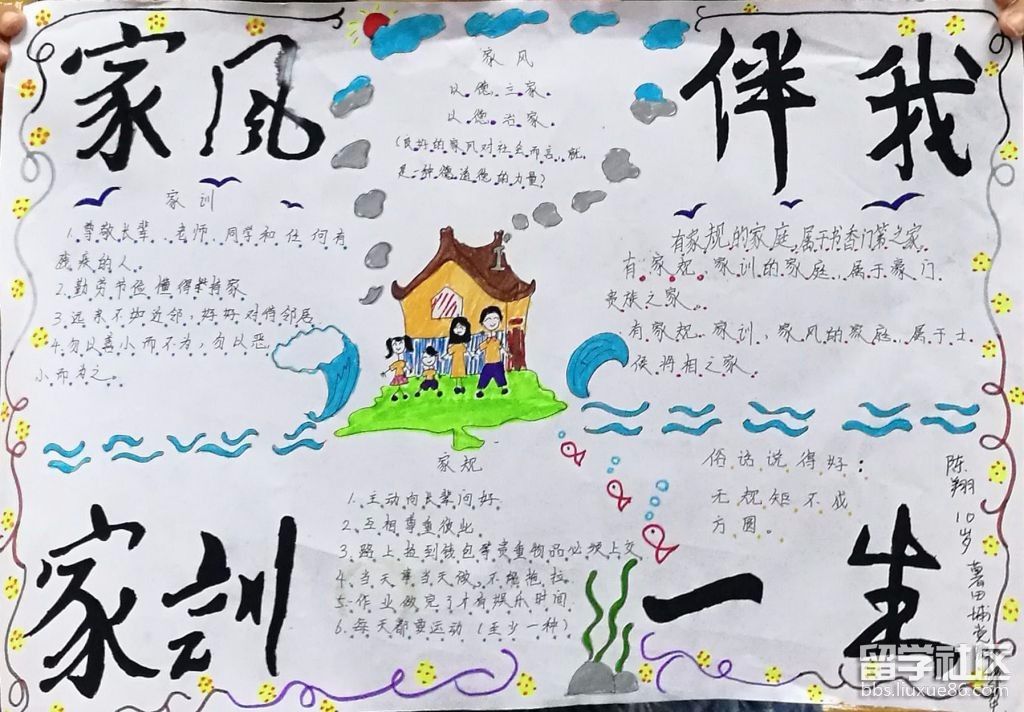 家风
伴我
家风
以德立家
以德治家
(良好的家风对社会而言,就
是一种德道德的力量)
家训
1.尊敬长辈、老师、同学和任何有
残疾的人。
2.勤劳节俭懂得持家
3.远亲不如近邻,好好对待邻居
4.勿以善小而不为,勿以恶
小而为之。
有家规的家庭,属于书香门第之家。
有家规、家训的家庭,属于豪门
贵族之家。
有家规、家训、家风的家庭,属于士
侯将相之家。
家规
1.主动向长辈问好
2.互相尊重彼此
3.路上捡到钱包等贵重物品必须上交
4.当天事当天做,不想拖拉
5.作业做完了才有娱乐时间
6.每天都要运动(至少一种)
俗话说得好:
无规矩不成
方圆。
家训
一生
陈翔 10岁
留学社区
bbs.liuxue86.com